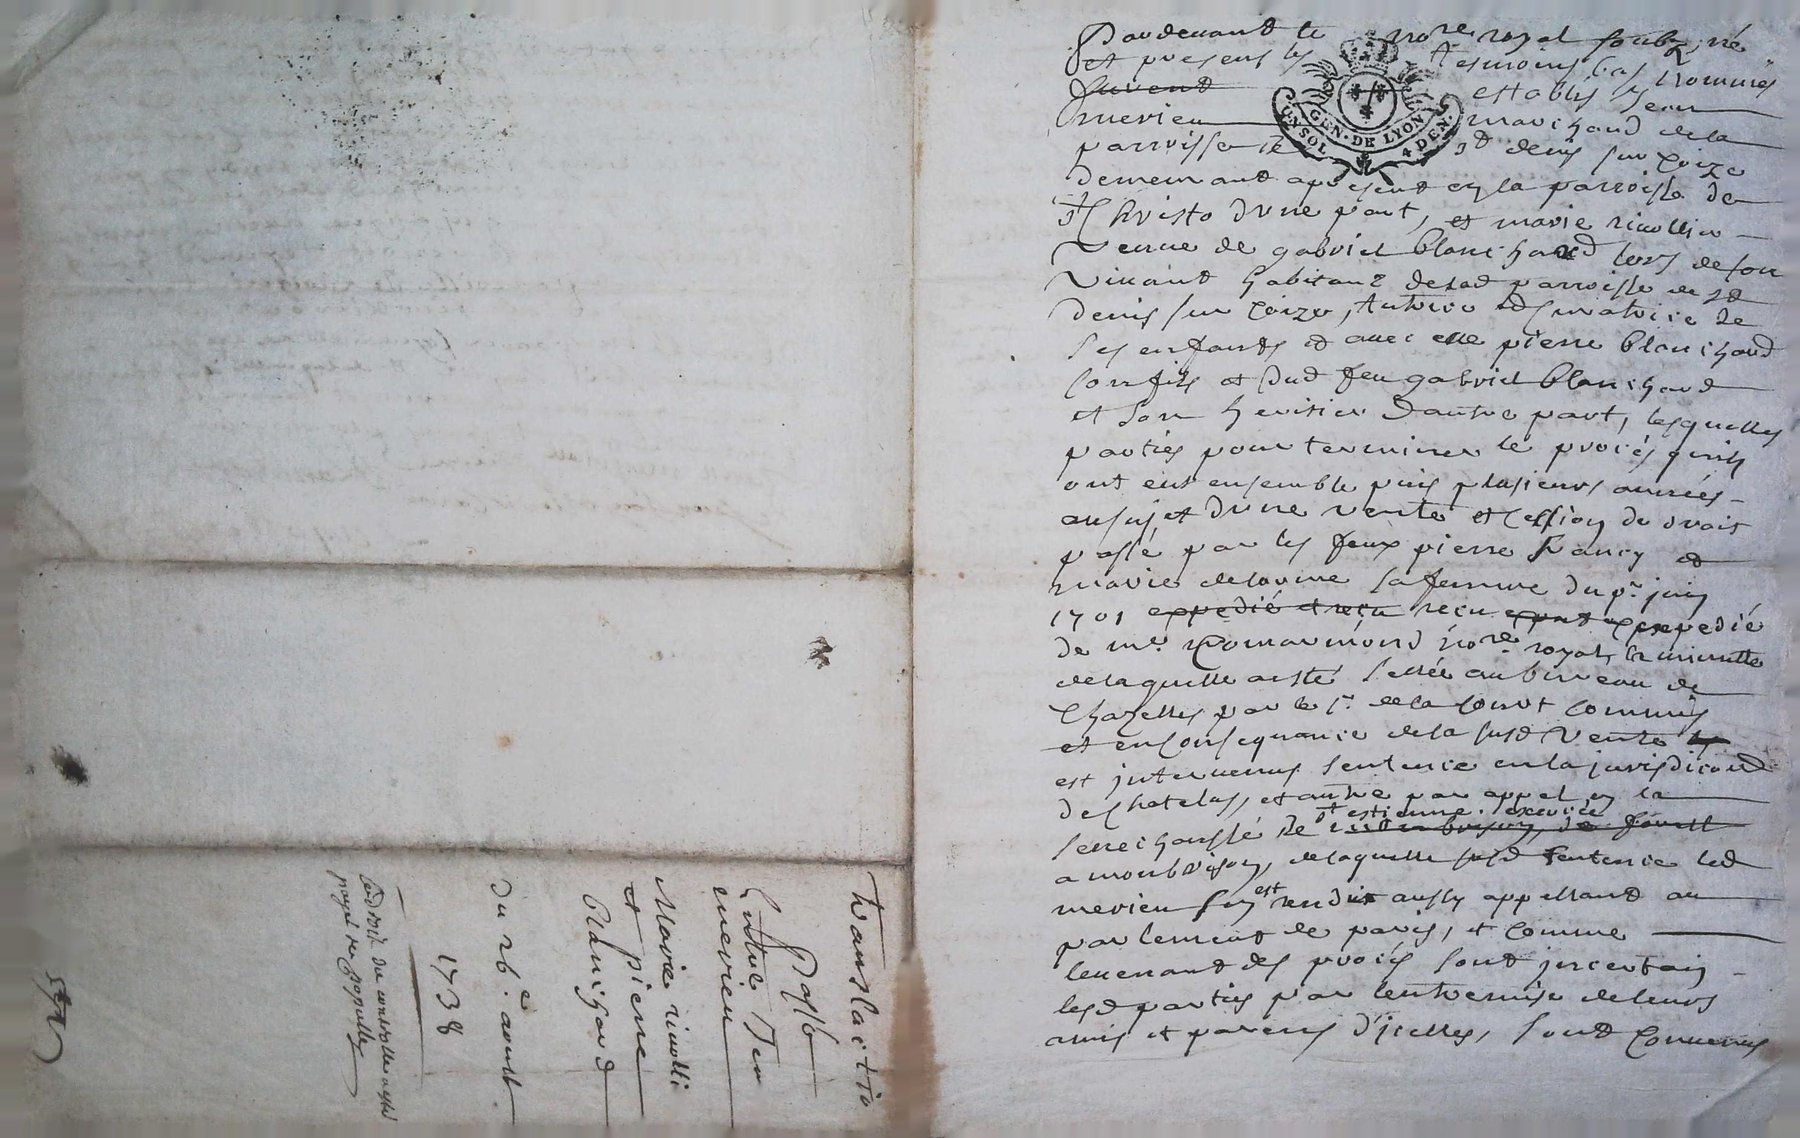 Pardevant le no.re royal soubz.né
et presens les tesmoins bas nommés
furent establis Jean
merieu marchand de la
parroisse de S.t denis sur Coize
demeurant apresent en la parroisse de
S.t Christo d'une part, et marie ricollier
veuve de gabriel blanchard lors de son
vivant habitant de lad parroisse de St
denis sur Coize, tutrice et curatrice de
ses enfants et avec elle pierre blanchard
son fils et dud feu gabriel blanchard
et son heritier d'autre part, lesquelles
parties pour terminer le procés qu'ils
ont eut ensemble puis plusieurs années
au sujet d'une vente et cession de droit
passé par les feux pierre et
marie sa femme du p.r juin
1701 expedié et reçu receu expedié
de m.e no.re royal, la minutte
de laquelle a esté sellée au bureau de
Chazelles par le s.r de la Commis
et en consequance de la susd vente
est intervenus sentence en la jurisdicon
de Chatelus, et autre par appel en la
senechaussé de S.t estienne exercée
a montbrison, de laquelle susd sentence led
merieu s'en est rendu aussy appellant au
parlement de paris, et comme
l'evenant des procés sont incertain
lesd parties par l'entremise de leurs
amis et parens d'icelles, sont convenus
GEN. DE LYON
UN SOL 4 DEN.
Translactio
Passé
Entre Jean
merieu
Marie ricolli
et pierre
Blanchard
du 26.e aoust
1738
Le droit du controlle a esté
payé